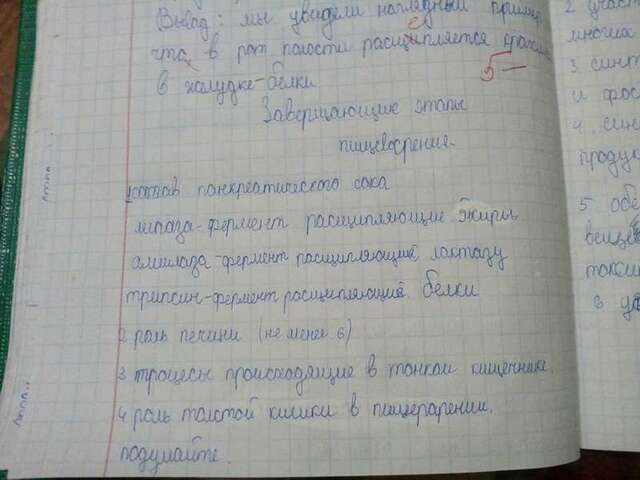 Вывод: мы увидели наглядный пример
что в рот полости расщипляется крахмал
в желудке-белки
5-
Завершающие этапы
пищеворения.
1 состав панкреатического сока
липаза-фермент расщипляющие жиры
амилаза-фермент расщипляющий лактазу
трипсин-фермент расщипляющий белки
2 роль печини (не менее 6)
3 процесы происходящие в тонком кишечнике.
4 роль толстой кишки в пищерарении.
подумайте.
2 участ
многих
3. синт
и фос
4. син
продук
5 обе
вещес
токси
в